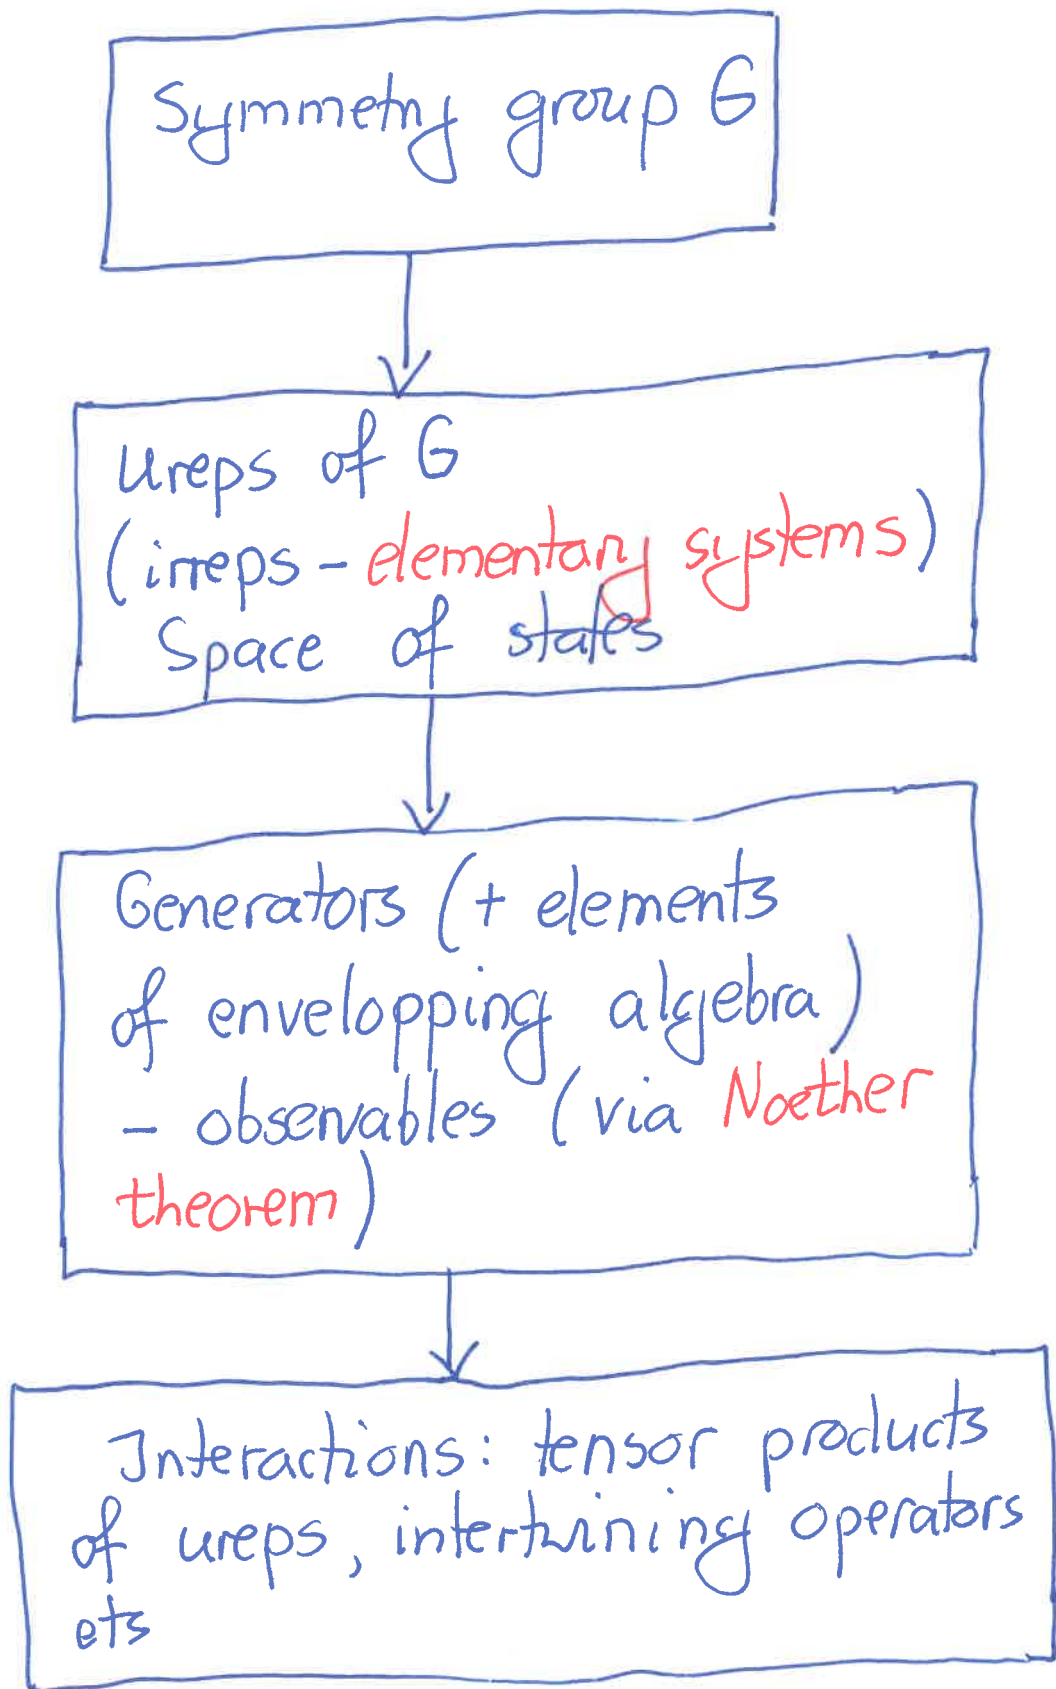 Symmetry group G
Ureps of G
(irreps - elementary systems)
Space of states
Generators (+ elements
of envelopping algebra)
- observables (via Noether
theorem)
Interactions: tensor products
of ureps, intertwining operators
ets